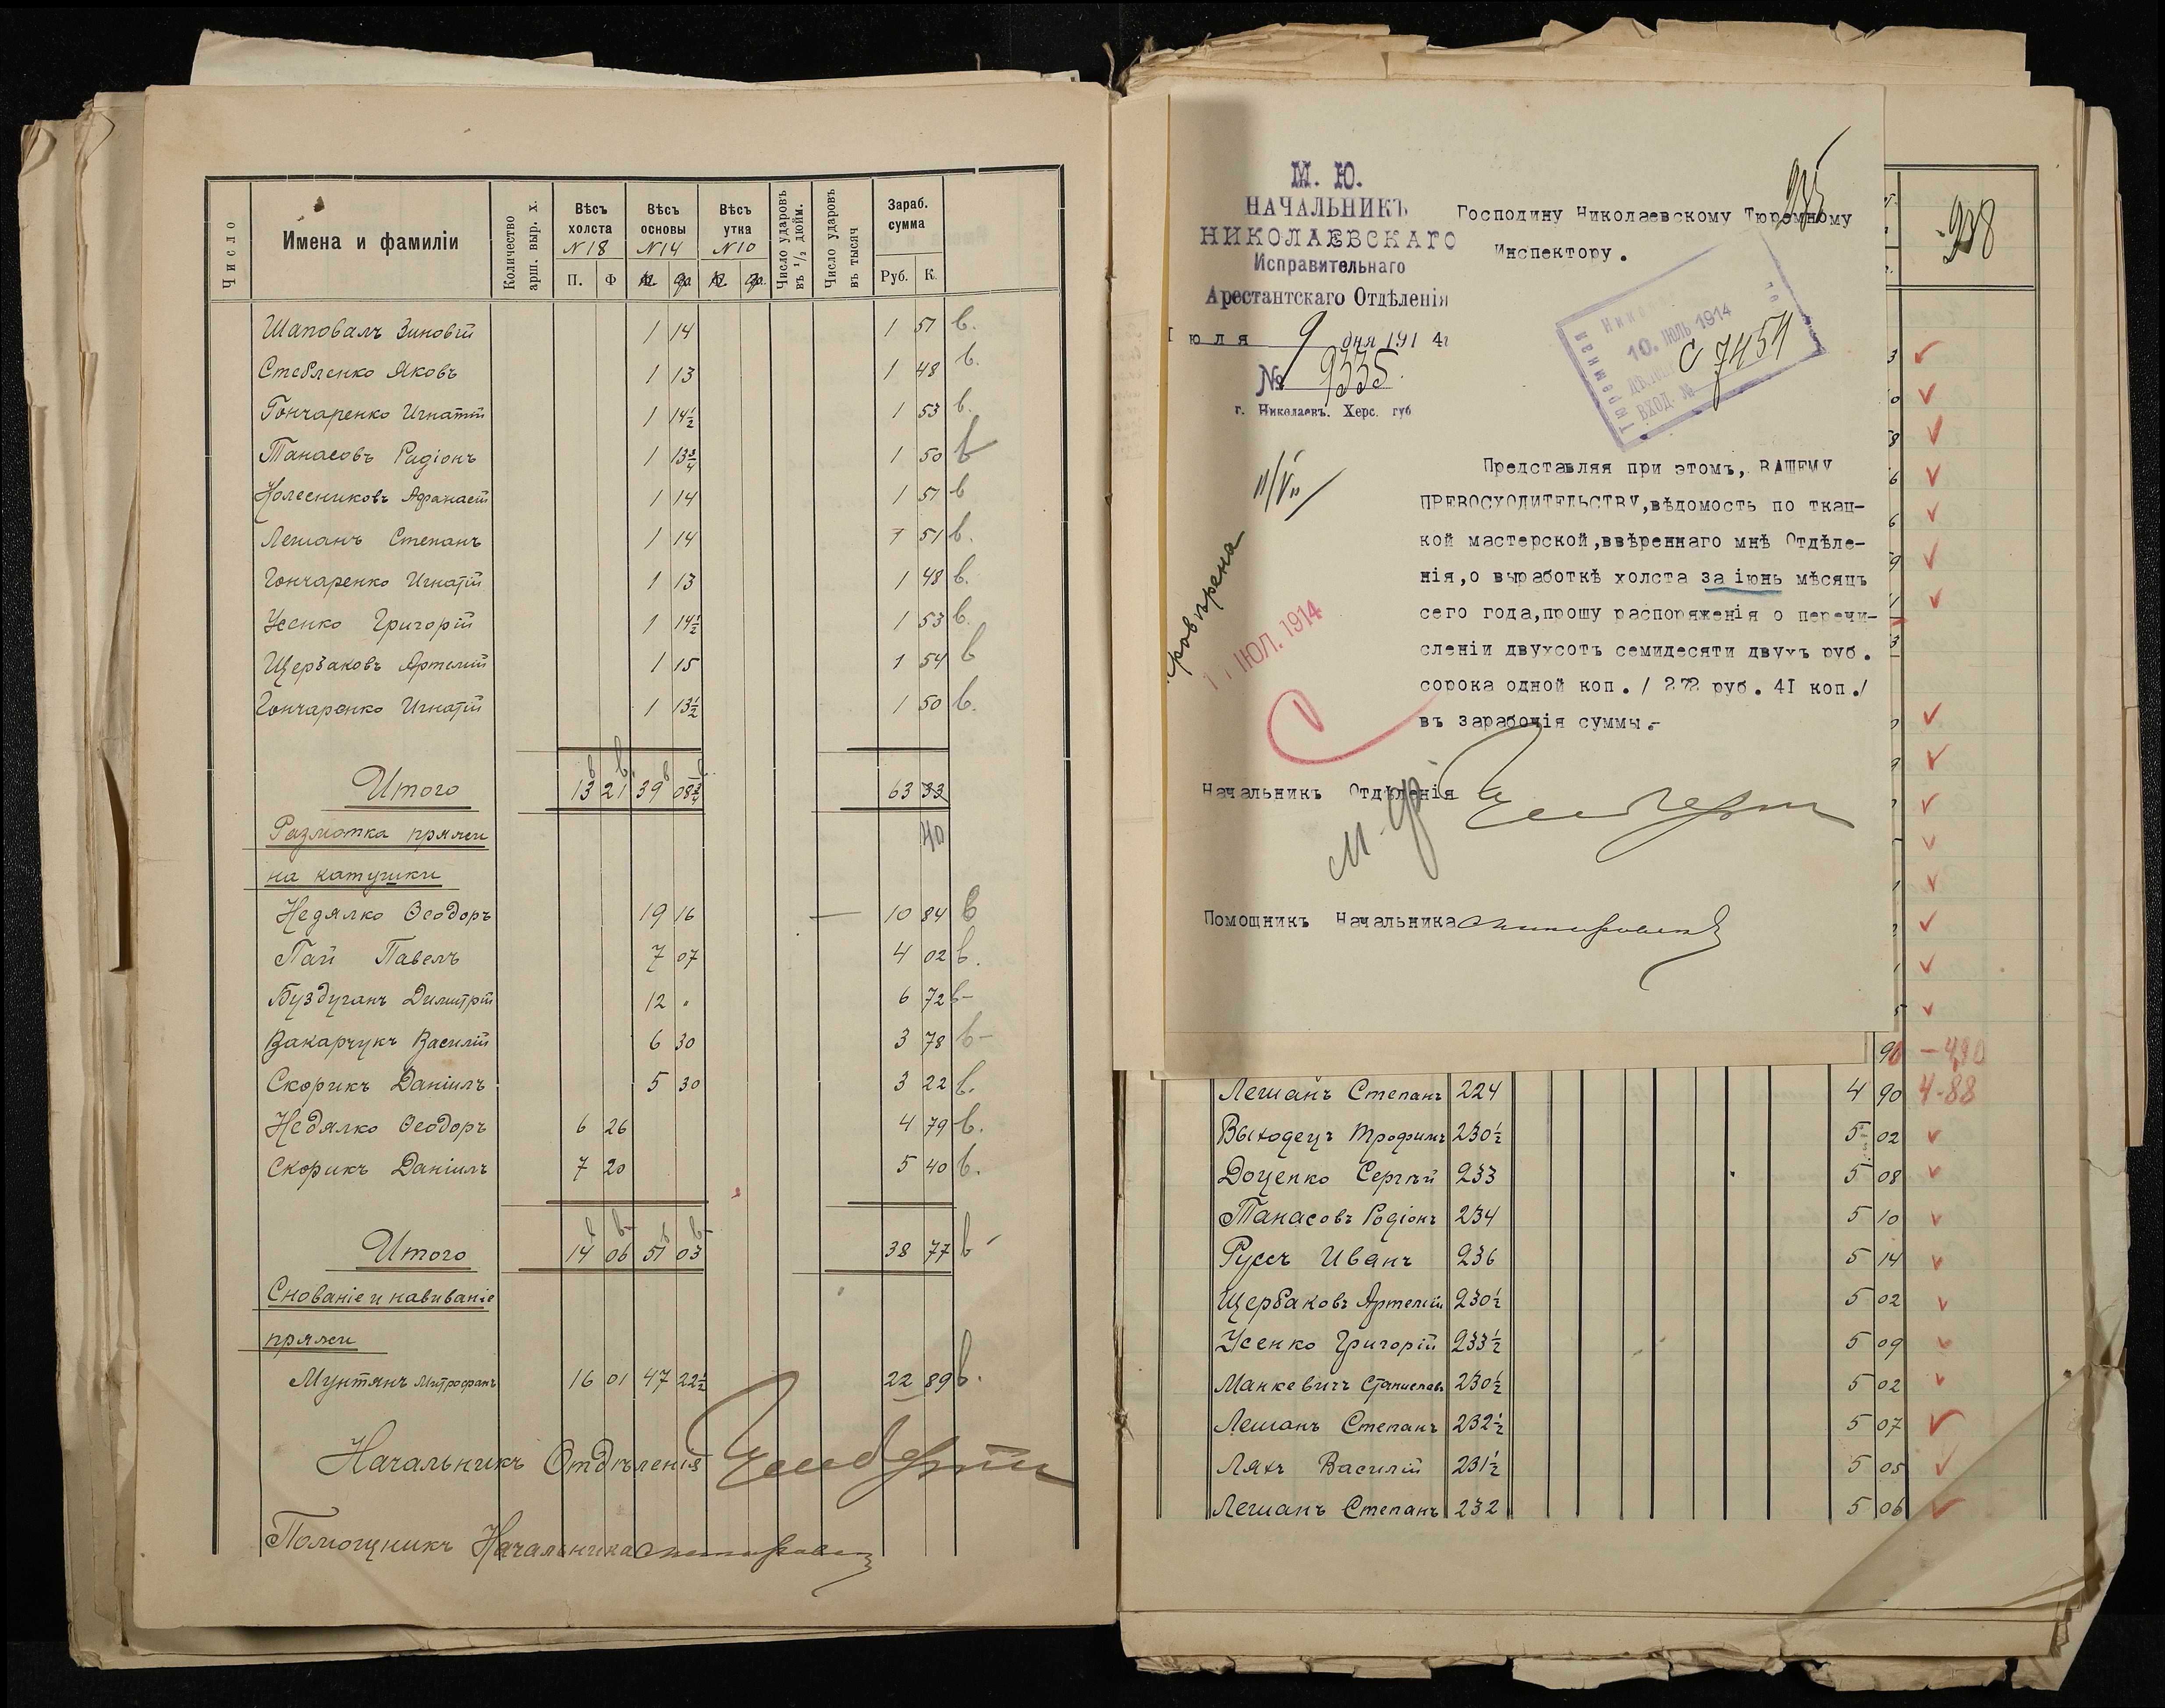 Число
Имена и фамиліи
Количество арш. выр. х.
Вѣсъ холста N18
Вѣсъ основы N14
Вѣсъ утка N10
Число ударовъ въ ½ дюйм.
Число ударовъ въ тысяч
Зараб. сумма
П. Ф
Руб. К.
Шаповалъ Зиновій 1 14 1 51 в.
Стебленко Яковъ 1 13 1 48 в.
Гончаренко Игнатій 1 14½ 1 53 в.
Танасовъ Радіонъ 1 13¾ 1 50 в
Колесниковъ Афанасій 1 14 1 51 в
Лешанъ Степанъ 1 14 1 51 в.
Гончаренко Игнатій 1 13 1 48 в.
Усенко Григорій 1 14½ 1 53 в.
Щербаковъ Артемій 1 15 1 54 в
Гончаренко Игнатій 1 13½ 1 50 в.
Итого 13 21 39 08¾ 63 33
40
Размотка пряжи
на катушки
Недялко Ѳеодоръ 19 16 10 84 в
Пай Павелъ 7 07 4 02 в.
Буздуганъ Димитрій 12 6 72 в
Вакарчукъ Василій 6 30 3 78 в
Скорикъ Даніилъ 5 30 3 22 в.
Недялко Ѳеодоръ 6 26 4 79 в.
Скорикъ Даніилъ 7 20 5 40 в.
Итого 14 06 51 03 38 77 в
Снованіе и навиваніе
пряжи
Мунтянъ Митрофанъ 16 01 47 22½ 22 89 в.
Начальникъ Отдѣленія
Помощникъ Начальника
М. Ю.
НАЧАЛЬНИКЪ
НИКОЛАЕВСКАГО
Исправительнаго
Арестантскаго Отдѣленія
юля 9 дня 1914г
№ 9335.
г. Николаевъ. Херс. губ
235
Господину Николаевскому Тюремному
Инспектору.
Тюремная
10. ІЮЛЬ 1914
ВХОД. № 7454
11/VII
Представляя при этомъ, ВАШЕМУ
ПРЕВОСХОДИТЕЛЬСТВУ,вѣдомость по ткац-
кой мастерской,ввѣреннаго мнѣ Отдѣле-
нія,о выработкѣ холста за іюнь мѣсяцъ
сего года,прошу распоряженія о перечи-
сленіи двухсотъ семидесяти двухъ руб.
сорока одной коп. / 272 руб. 41 коп./
въ заработія суммы.-
ровѣрена
11 ІЮЛ. 1914
Начальникъ Отдѣленія
Помощникъ Начальника
238
90 -4,90
Лешанъ Степанъ 224 4 90 4-88
Выходецъ Трофимъ 230½ 5 02
Доценко Сергѣй 233 5 08
Танасовъ Родіонъ 234 5 10
Руссъ Иванъ 236 5 14
Щербаковъ Артемій 230½ 5 02
Усенко Григорій 233½ 5 09
Манкевичъ Станиславъ 230½ 5 02
Лешанъ Степанъ 232½ 5 07
Ляхъ Василій 231½ 5 05
Лешанъ Степанъ 232 5 06